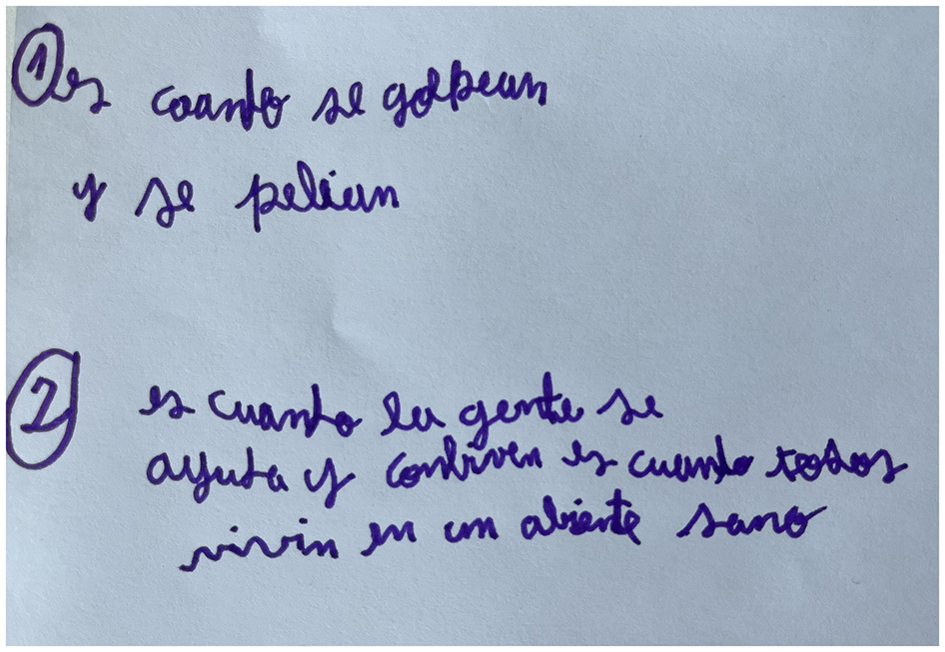 ① es coando se golpean
y se pelian
② es cuando la gente se
ayuda y conbiven es cuando todos
vivin en un abiente sano